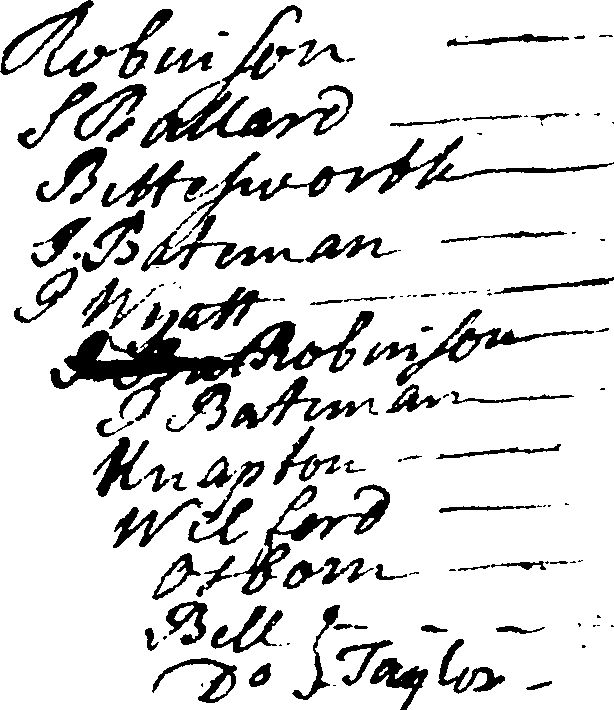 Robinson
S Ballard
Bettesworth
J. Bateman
P Wyatt
Robinson
J Bateman
Knapton
Wilford
Osborn
Bell
Do } Taylor